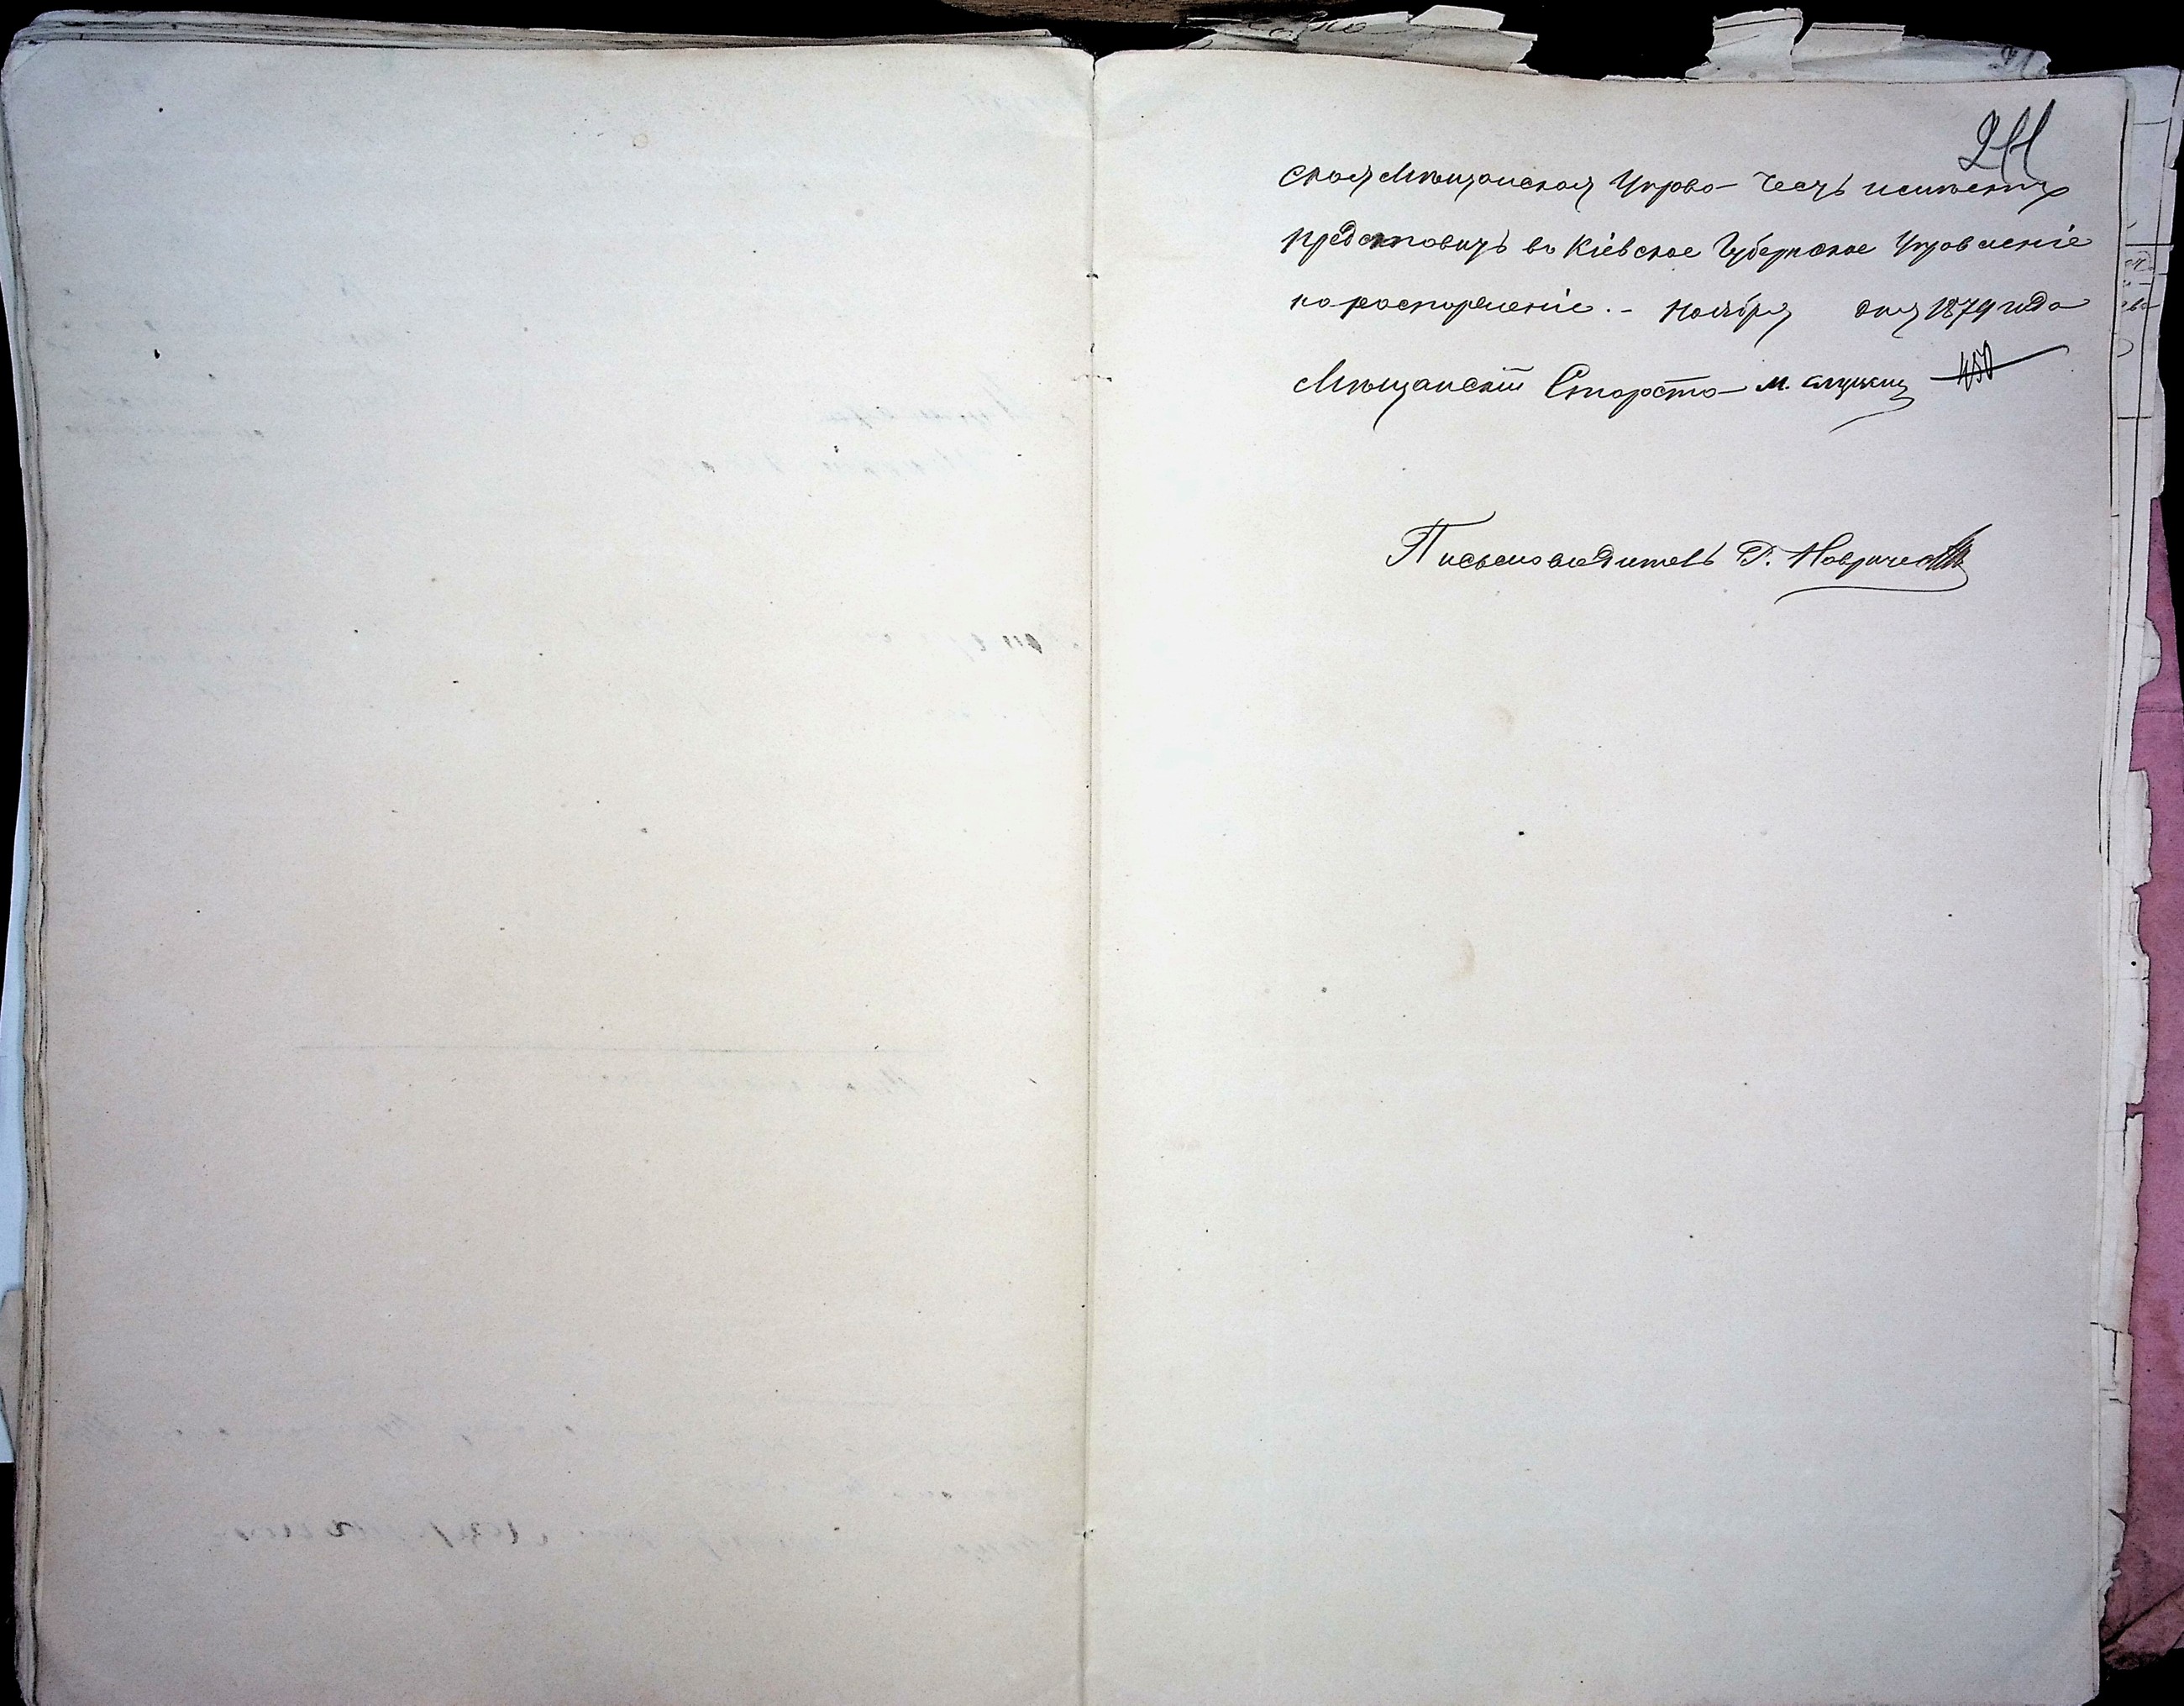 211
ская Мѣщанская Управа честь имѣетъ
представить въ Кіевское Губернское Управленіе
на распоряженіе. - Ноября дня 1879 года
Мѣщанскій Староста М. Слуцкій
Письмоводитель Г.